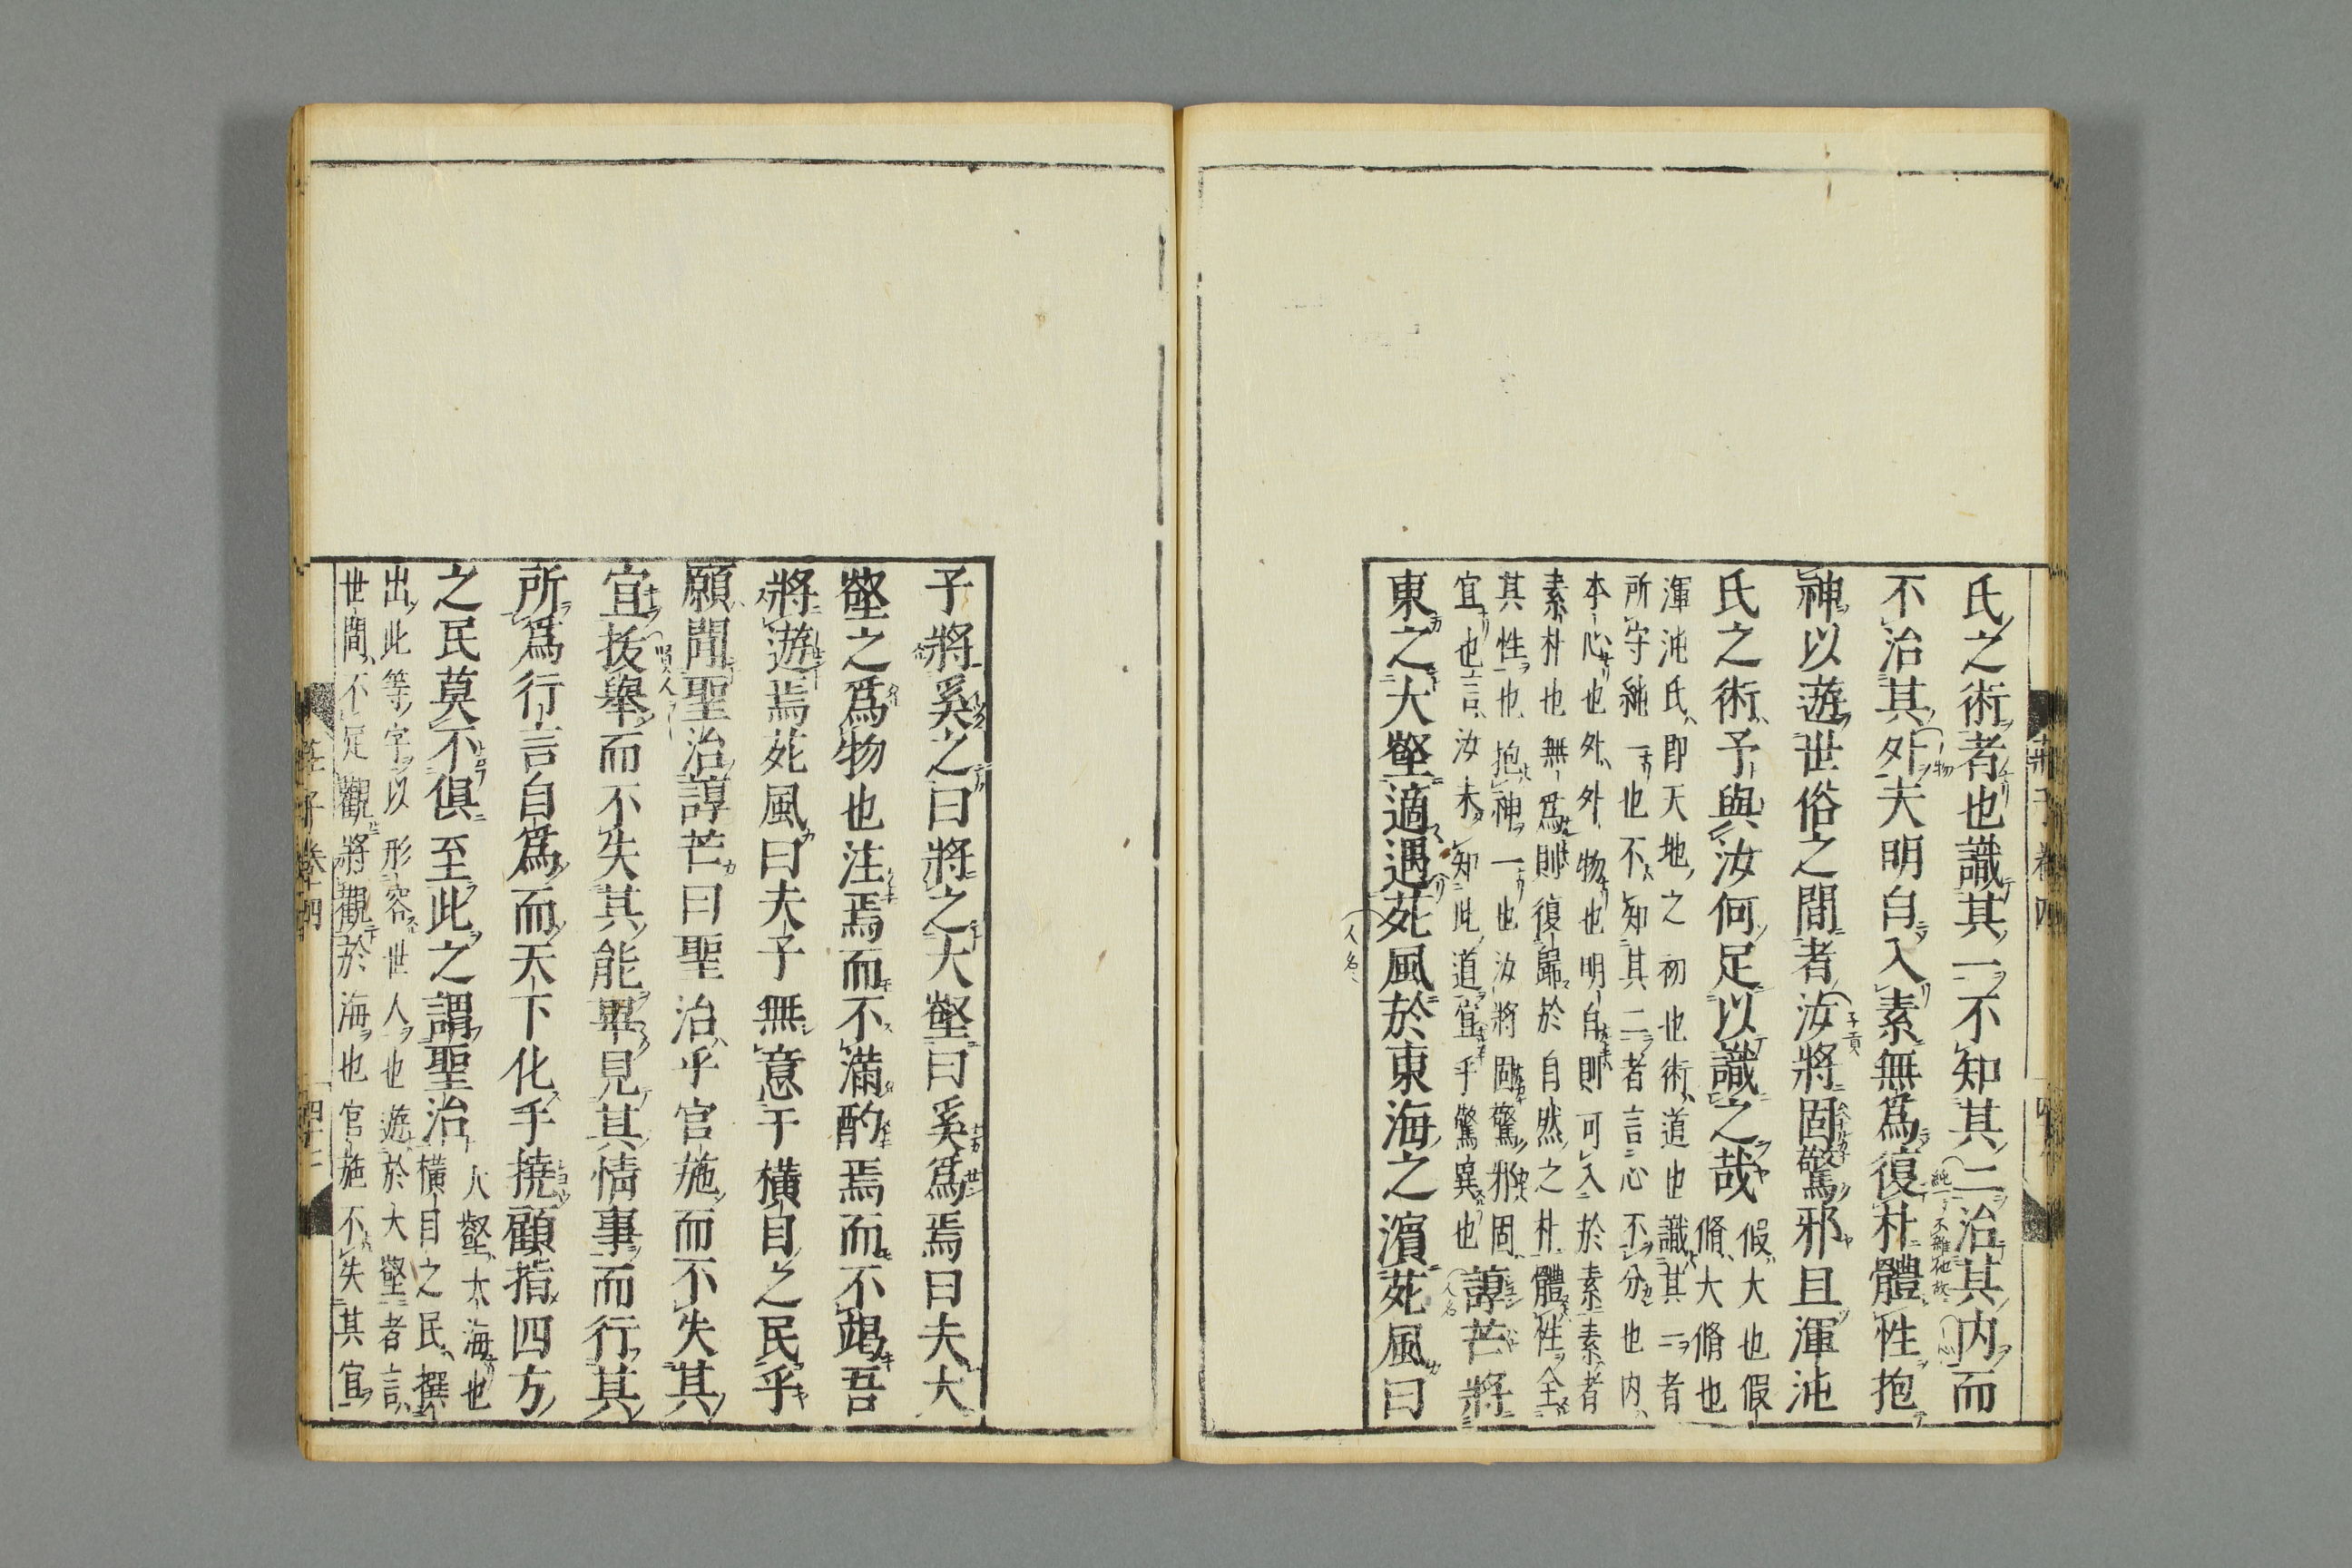 氏之術者也識其一不知其二治其内而
不治其外夫明白入素無爲復朴體性抱
神以遊世俗之間者汝將固驚邪且渾沌
氏之術予與汝何足以識之哉
假大也假
脩大脩也
渾沌氏即天地之初也術道也識其一者
所守純一也不知其二者言心不分也内
本心也外外物也明白則可入於素素者
素朴也無爲則復歸於自然之朴體性全
其性也抱神一也汝將固驚邪固
宜也言汝未知此道宜乎驚異也
諄芒將
東之大壑適遇苑風於東海之濱苑風曰
子將奚之曰將之大壑曰奚爲焉曰夫大
壑之爲物也注焉而不滿酌焉而不竭吾
將遊焉苑風曰夫子無意于橫目之民乎
願聞聖治諄芒曰聖治乎官施而不失其
宜拔舉而不失其能畢見其情事而行其
所爲行言自爲而天下化手撓顧指四方
之民莫不俱至此之謂聖治
大壑大海也
橫目之民撰
出此等字以形容世人也遊於大壑者言
世間不足觀將觀於海也官施不失其宜
莊子卷四